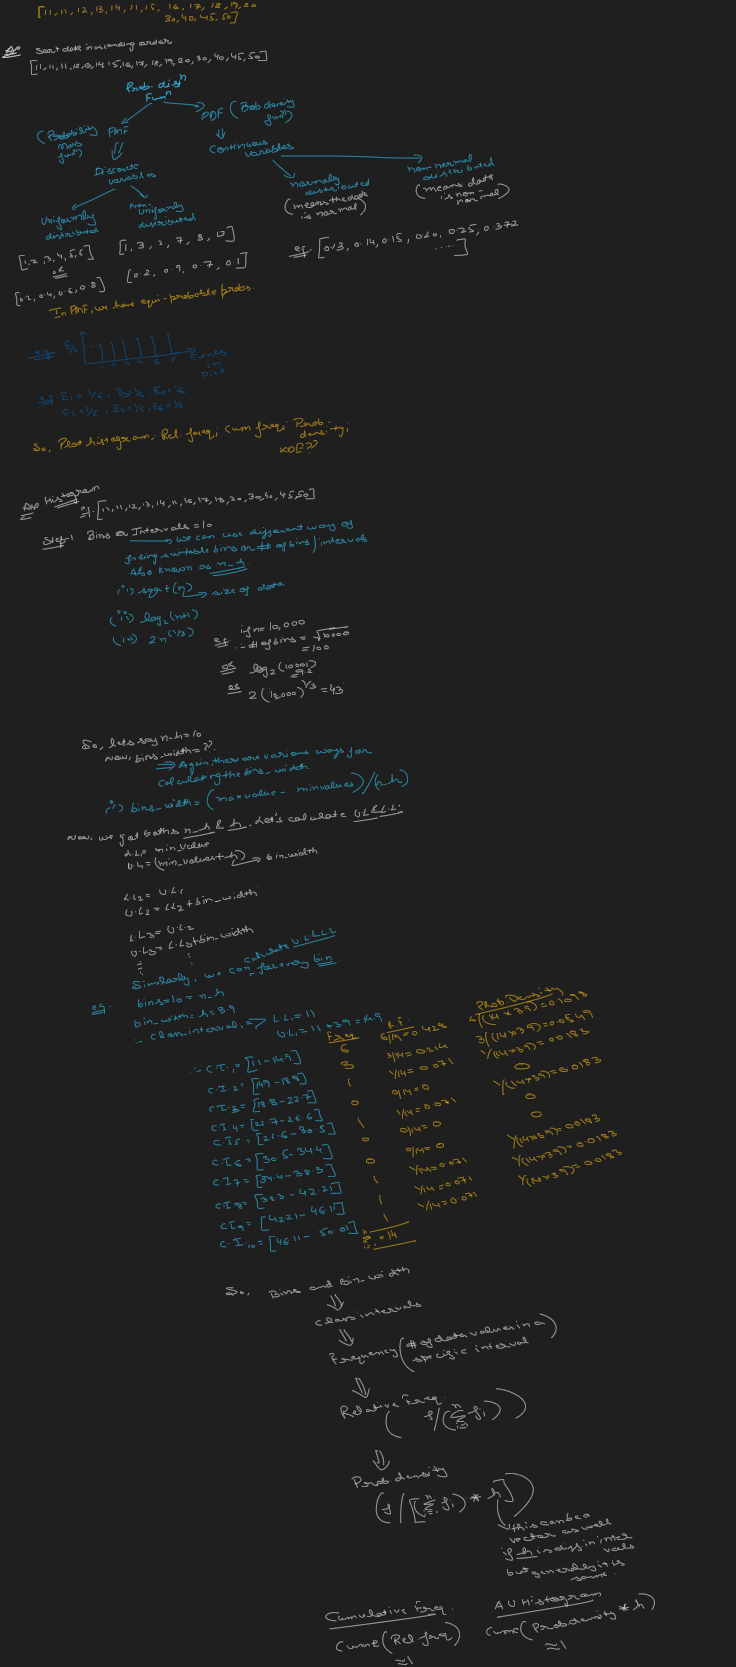 [11, 11, 12, 13, 14, 11, 15, 16, 17, 18, 19, 20
30, 40, 45, 50]
Sort data in ascending order
[11, 11, 11, 12, 13, 14, 15, 16, 17, 18, 19, 20, 30, 40, 45, 50]
Prob. disⁿ
Funⁿ
PDF (Prob. density
funⁿ)
(Probability
mass
funⁿ)
PMF
Continuous
variables
Discrete
variables
normally
distributed
(means the data
is normal)
non normal
distributed
(means data
is non-
normal)
Uniformly
distributed
Non-
uniformly
distributed
[1, 2, 3, 4, 5, 6]
or
[1, 3, 2, 7, 8, 10]
[0.2, 0.4, 0.6, 0.8]
[0.2, 0.9, 0.7, 0.1]
eg. [0.13, 0.14, 0.15, 0.20, 0.25, 0.372
....]
In PMF, we have equi-probable probs.
eg. E₁ = 1/6, E₃ = 1/6, E₅ = 1/6
E₂ = 1/6, E₄ = 1/6, E₆ = 1/6
So, Plot histogram, Rel. freq, Cum freq, Prob.
density,
KDE??
Histogram
eg. [11, 11, 12, 13, 14, 11, 16, 17, 18, 20, 30, 40, 45, 50]
Step-1 Bins or Intervals = 10
we can use different way of
finding suitable bins or # of bins/intervals
Also known as n_h.
(i) sqrt(n) → size of data
(ii) log₂(n+1)
(iii) 2n^(1/3)
eg. if n = 10,000
∴ # of bins = √10000
= 100
or log₂(10001)
or 2(10000)^1/3 = 43
So, lets say n_h = 10
Now, bins_width = ??
⇒ Again, there are various ways for
calculating the bins_width
(i) bins_width = (max value - min values)/(n_h)
Now, we got both n_h & h. Let's calculate U.L & L.L.
L.L₁ = min_value
U.L₁ = (min_values + h) → bin_width
L.L₂ = U.L₁
U.L₂ = LL₂ + bin_width
L.L₃ = U.L₂
U.L₃ = L.L₃ + bin_width
Similarly, we can calculate U.L & L.L for every bin
eg. bins = 10 = n_h
bin_width = h = 3.9
∴ Class interval₁ ⇒ L.L₁ = 11
U.L₁ = 11 + 3.9 = 14.9
Freq R.F. Prob. Density
∴ C.I.₁ = [11 - 14.9] 6 6/14 = 0.428 6/(14×3.9) = 0.1098
C.I.₂ = [14.9 - 18.8] 3 3/14 = 0.214 3/(14×3.9) = 0.0549
C.I.₃ = [18.8 - 22.7] 1 1/14 = 0.071 1/(14×3.9) = 0.0183
C.I.₄ = [22.7 - 26.6] 0 0/14 = 0 0
C.I.₅ = [26.6 - 30.5] 1 1/14 = 0.071 1/(14×3.9) = 0.0183
C.I.₆ = [30.5 - 34.4] 0 0/14 = 0 0
C.I.₇ = [34.4 - 38.3] 0 0/14 = 0 0
C.I.₈ = [38.3 - 42.21] 1 1/14 = 0.071 1/(14×3.9) = 0.0183
C.I.₉ = [42.21 - 46.11] 1 1/14 = 0.071 1/(14×3.9) = 0.0183
C.I.₁₀ = [46.11 - 50.01] 1 1/14 = 0.071 1/(14×3.9) = 0.0183
= 14
So, Bins and Bin_width
Class intervals
Frequency (# of data values in a
specific interval)
Relative Freq.
(f/(Σfi))
Prob density
(f/[(Σfi) * h])
this can be a
vector as well
if h is diff in inter
vals
but generally it is
same.
Cumulative Freq.
Cumc(Rel freq)
≈ 1
AU Histogram
Cumc(Prob density * h)
≈ 1